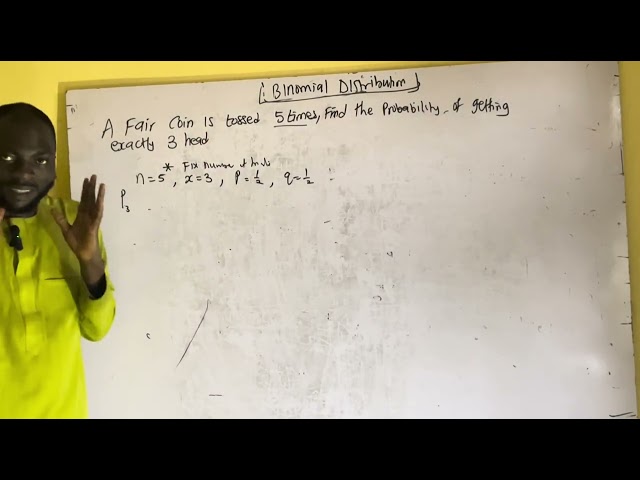 Binomial Distribution
A Fair Coin is tossed 5 times, Find the Probability of getting
exactly 3 head
* Fix Number of
n=5, x=3, p=1/2, q=1/2
P3